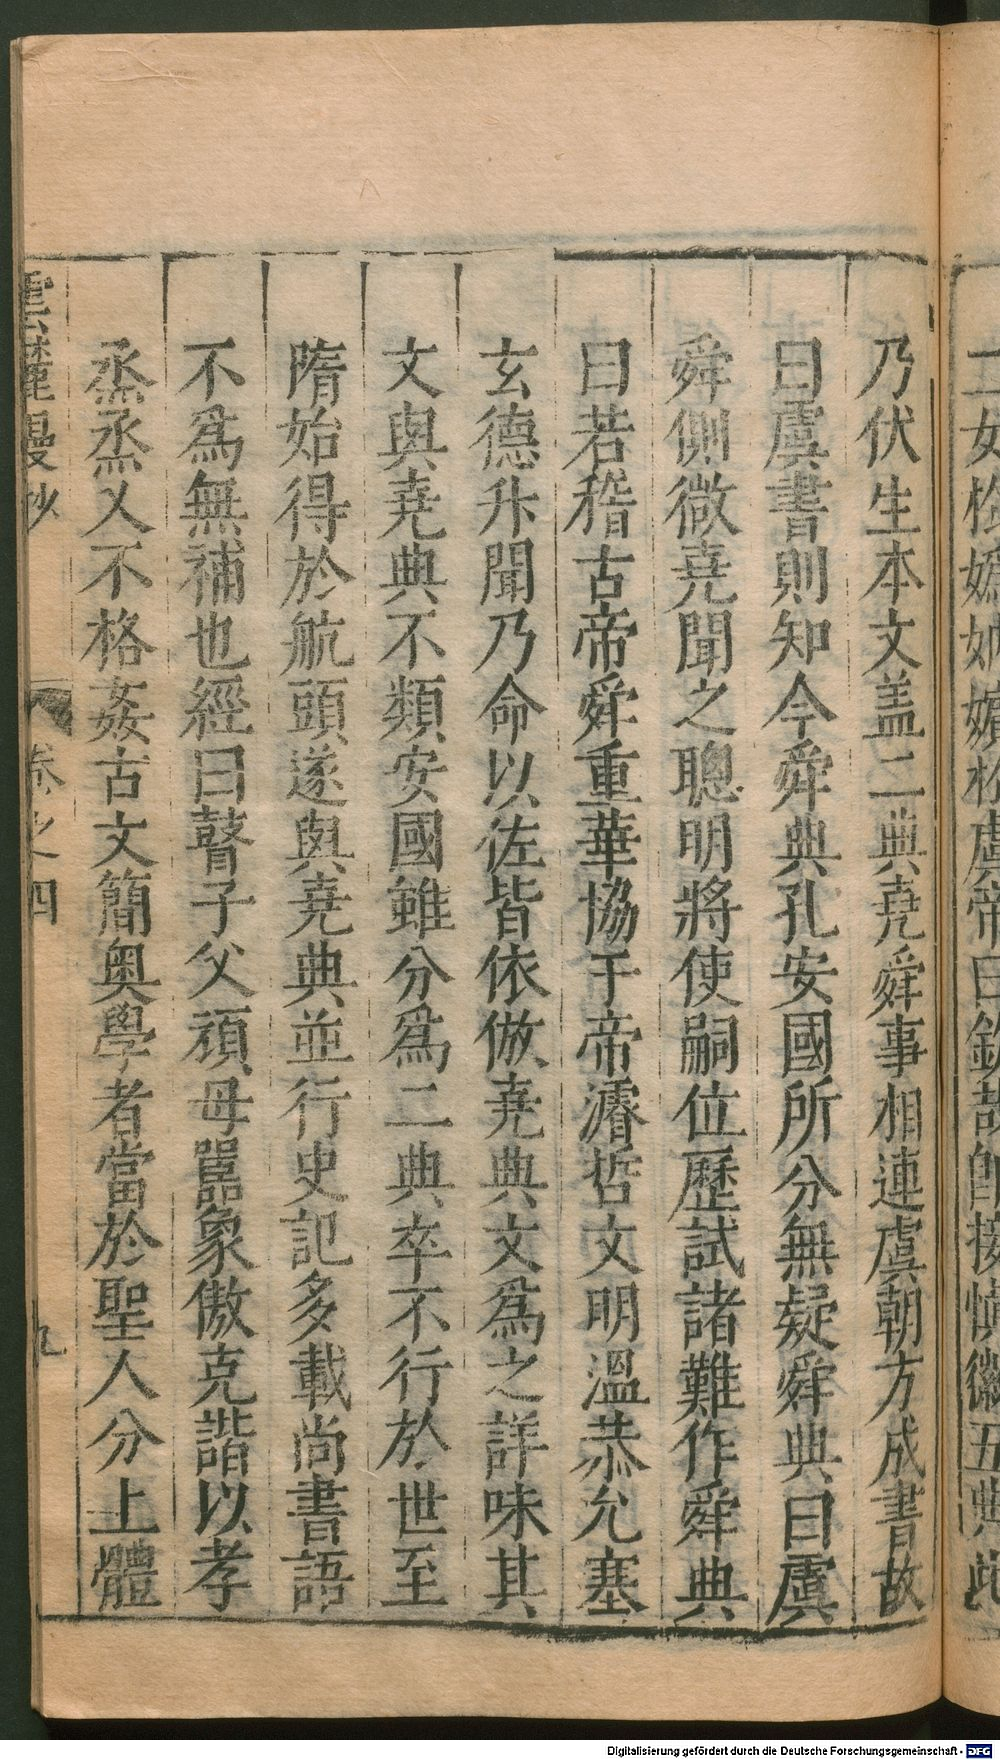 二女於嬀汭嬪於虞帝曰欽哉即接慎徽五典此
乃伏生本文盖二典堯舜事相連虞朝方成書故
曰虞書則知今舜典孔安國所分無疑舜典曰虞
舜側微堯聞之聰明將使嗣位歷試諸難作舜典
曰若稽古帝舜重華協于帝濬哲文明溫恭允塞
玄德升聞乃命以佐皆依倣堯典文爲之詳味其
文與堯典不類安國雖分爲二典卒不行於世至
隋始得於航頭遂與堯典並行史記多載尚書語
不爲無補也經曰瞽子父頑母嚚象傲克諧以孝
烝烝乂不格姦古文簡奥學者當於聖人分上體
雲麓漫抄 卷之四 九
Digitalisierung gefördert durch die Deutsche Forschungsgemeinschaft - DFG